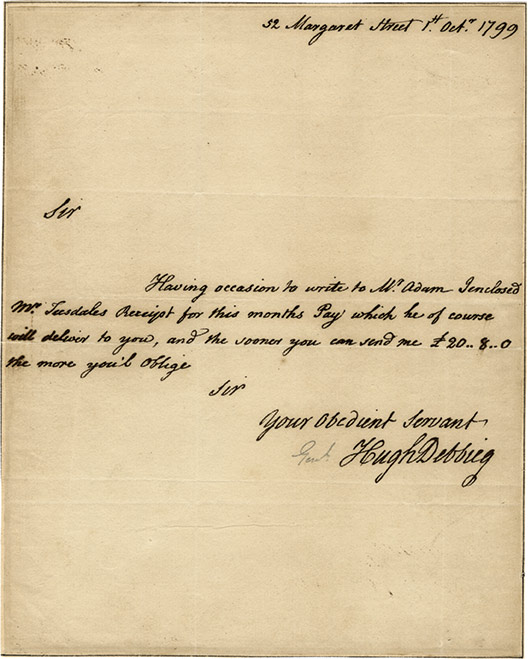 52 Margaret Street 1st. Octr. 1799
Sir
Having occasion to write to Mr. Adam I enclosed
Mr. Teesdales Receipt for this months Pay which he of course
will deliver to you, and the sooner you can send me £20..8..0
the more you'l Oblige
Sir
Your Obedient Servant
Genl. Hugh Debbieg